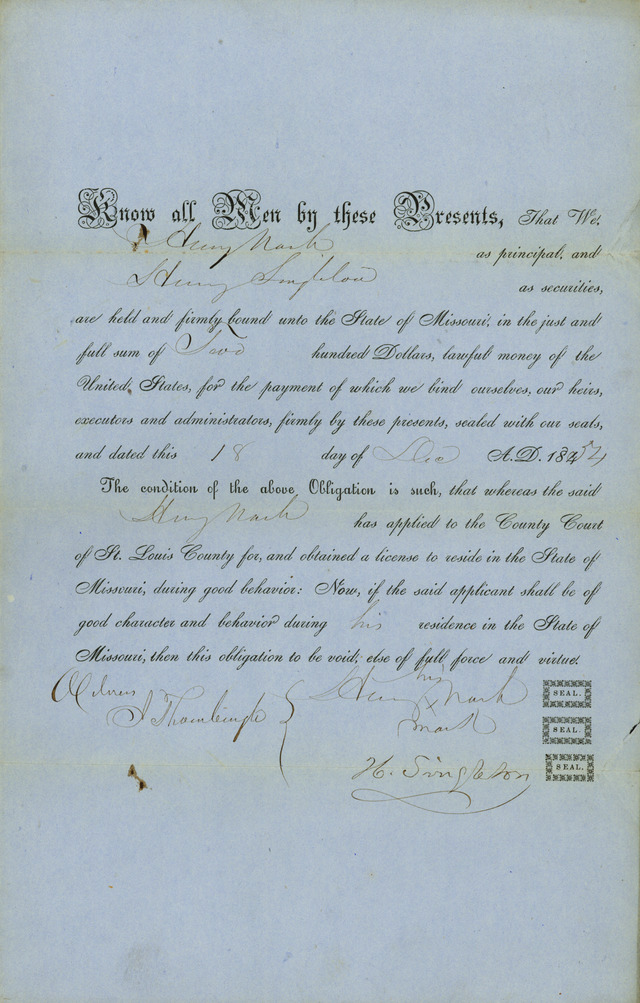 Know all Men by these Presents, That We,
Henry Nash as principal, and
Henry Singleton as securities,
are held and firmly bound unto the State of Missouri, in the just and
full sum of Two hundred Dollars, lawful money of the
United States, for the payment of which we bind ourselves, our heirs,
executors and administrators, firmly by these presents, sealed with our seals,
and dated this 18 day of Dec A.D. 1854
The condition of the above Obligation is such, that whereas the said
Henry Nash has applied to the County Court
of St. Louis County for, and obtained a license to reside in the State of
Missouri, during good behavior: Now, if the said applicant shall be of
good character and behavior during his residence in the State of
Missouri, then this obligation to be void, else of full force and virtue.
his
Henry X Nash SEAL.
J Thornburgh mark SEAL.
H. Singleton SEAL.